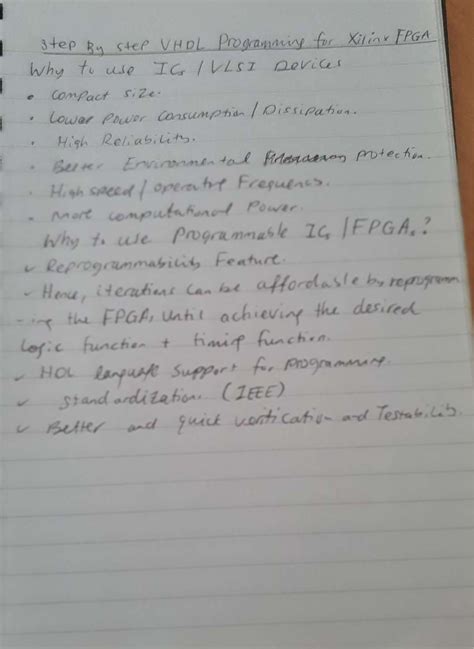 Step By Step VHDL Programming for Xilinx FPGA
Why to use ICs / VLSI Devices
• Compact size.
• Lower Power Consumption / Dissipation.
• High Reliability.
• Better Environmental protection.
• High speed / operative Frequency.
• More computational Power.
Why to use Programmable ICs / FPGAs?
✓ Reprogrammability Feature.
- Hence, iterations can be affordable by reprogramm
-ing the FPGAs until achieving the desired
Logic function + timing function.
✓ HDL language support for programming.
✓ Standardization. (IEEE)
✓ Better and quick verification and Testability.